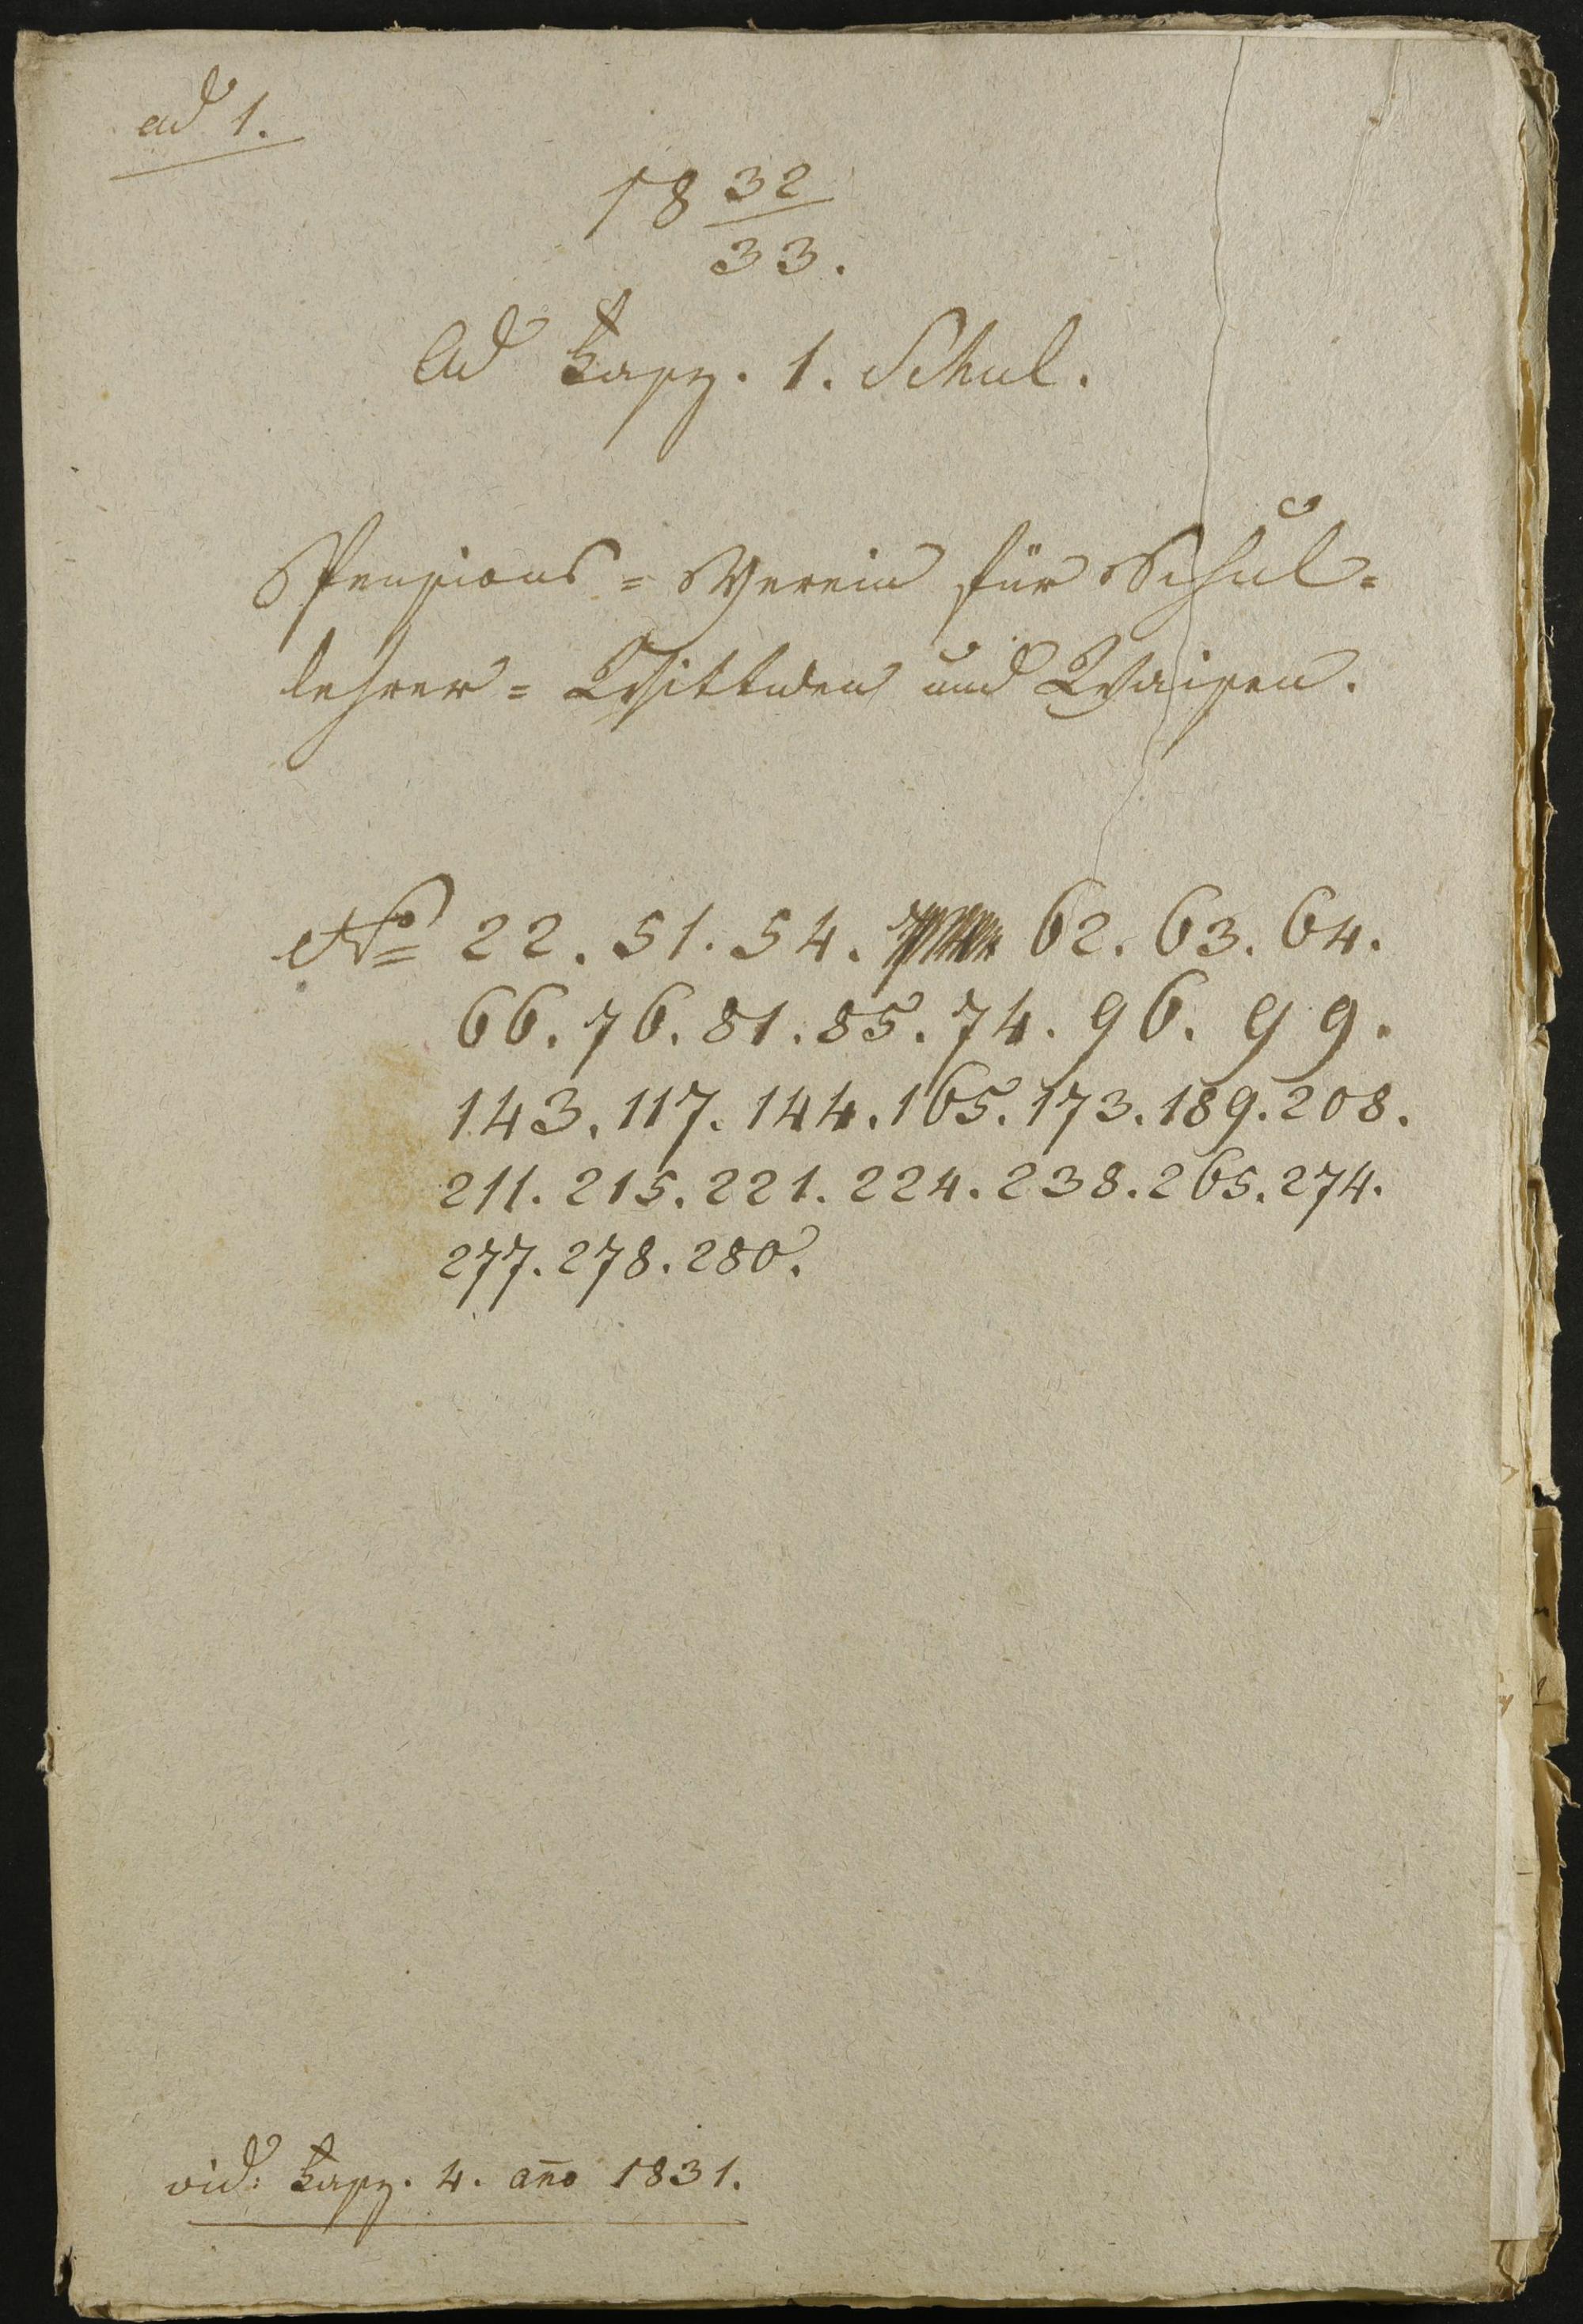 ad 1.
18 32/33.
Ad Kapz. 1. Schul.
Pensions = Verein für Schul=
lehrer = Wittwen und Waisen.
No 22. 51. 54. 62. 63. 64.
66. 76. 81. 85. 74. 96. 99.
143. 117. 144. 165. 173. 189. 208.
211. 215. 221. 224. 238. 265. 274.
277. 278. 280.
vid: Kapz. 4. año 1831.